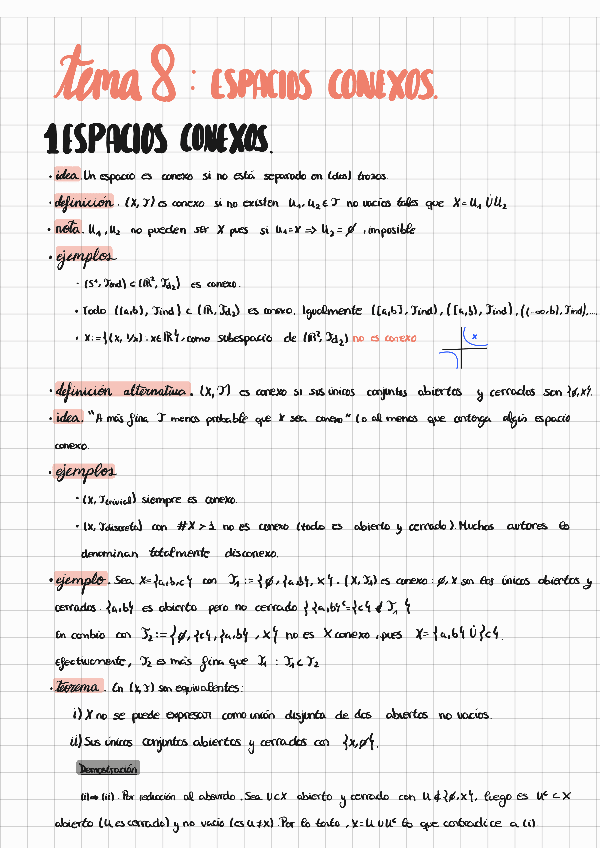 tema 8: ESPACIOS CONEXOS.
1 ESPACIOS CONEXOS.
· idea. Un espacio es conexo si no está separado en (dos) trozos.
· definición. (X, T) es conexo si no existen U₁, U₂ ∈ T no vacíos tales que X = U₁ ∪̇ U₂
· nota. U₁, U₂ no pueden ser X pues si U₁ = X => U₂ = ∅, imposible
· ejemplos
· (S¹, Tind) ⊂ (ℝ², Td₂) es conexo.
· Todo ((a,b), Tind) ⊂ (ℝ, Td₂) es conexo. Igualmente ([a,b], Tind), ([a,b), Tind), ((-∞,b), Tind),...
· X := {(x, 1/x) : x ∈ ℝ}, como subespacio de (ℝ², Td₂) no es conexo
X
· definición alternativa. (X, T) es conexo si sus únicos conjuntos abiertos y cerrados son {∅, X}.
· idea. "A más fina T menos probable que X sea conexo" (o al menos que contenga algún espacio
conexo.
· ejemplos
· (X, Ttrivial) siempre es conexo.
· (X, Tdiscreta) con #X > 1 no es conexo (todo es abierto y cerrado). Muchos autores lo
denominan totalmente disconexo.
· ejemplo. Sea X = {a,b,c} con T₁ := {∅, {a,b}, X}. (X, T₁) es conexo: ∅, X son los únicos abiertos y
cerrados. {a,b} es abierto pero no cerrado } {a,b}ᶜ = {c} ∉ T₁ {
En cambio con T₂ := {∅, {c}, {a,b}, X} no es X conexo, pues X = {a,b} ∪̇ {c}.
Efectivamente, T₂ es más fina que T₁ : T₁ ⊂ T₂
· teorema. En (X, T) son equivalentes:
i) X no se puede expresar como unión disjunta de dos abiertos no vacíos.
ii) Sus únicos conjuntos abiertos y cerrados son {X, ∅}.
Demostración
(i) => (ii). Por reducción al absurdo. Sea U ⊂ X abierto y cerrado con U ∉ {∅, X}, luego es Uᶜ ⊂ X
abierto (U es cerrado) y no vacío (es U ≠ X). Por lo tanto, X = U ∪ Uᶜ lo que contradice a (i)